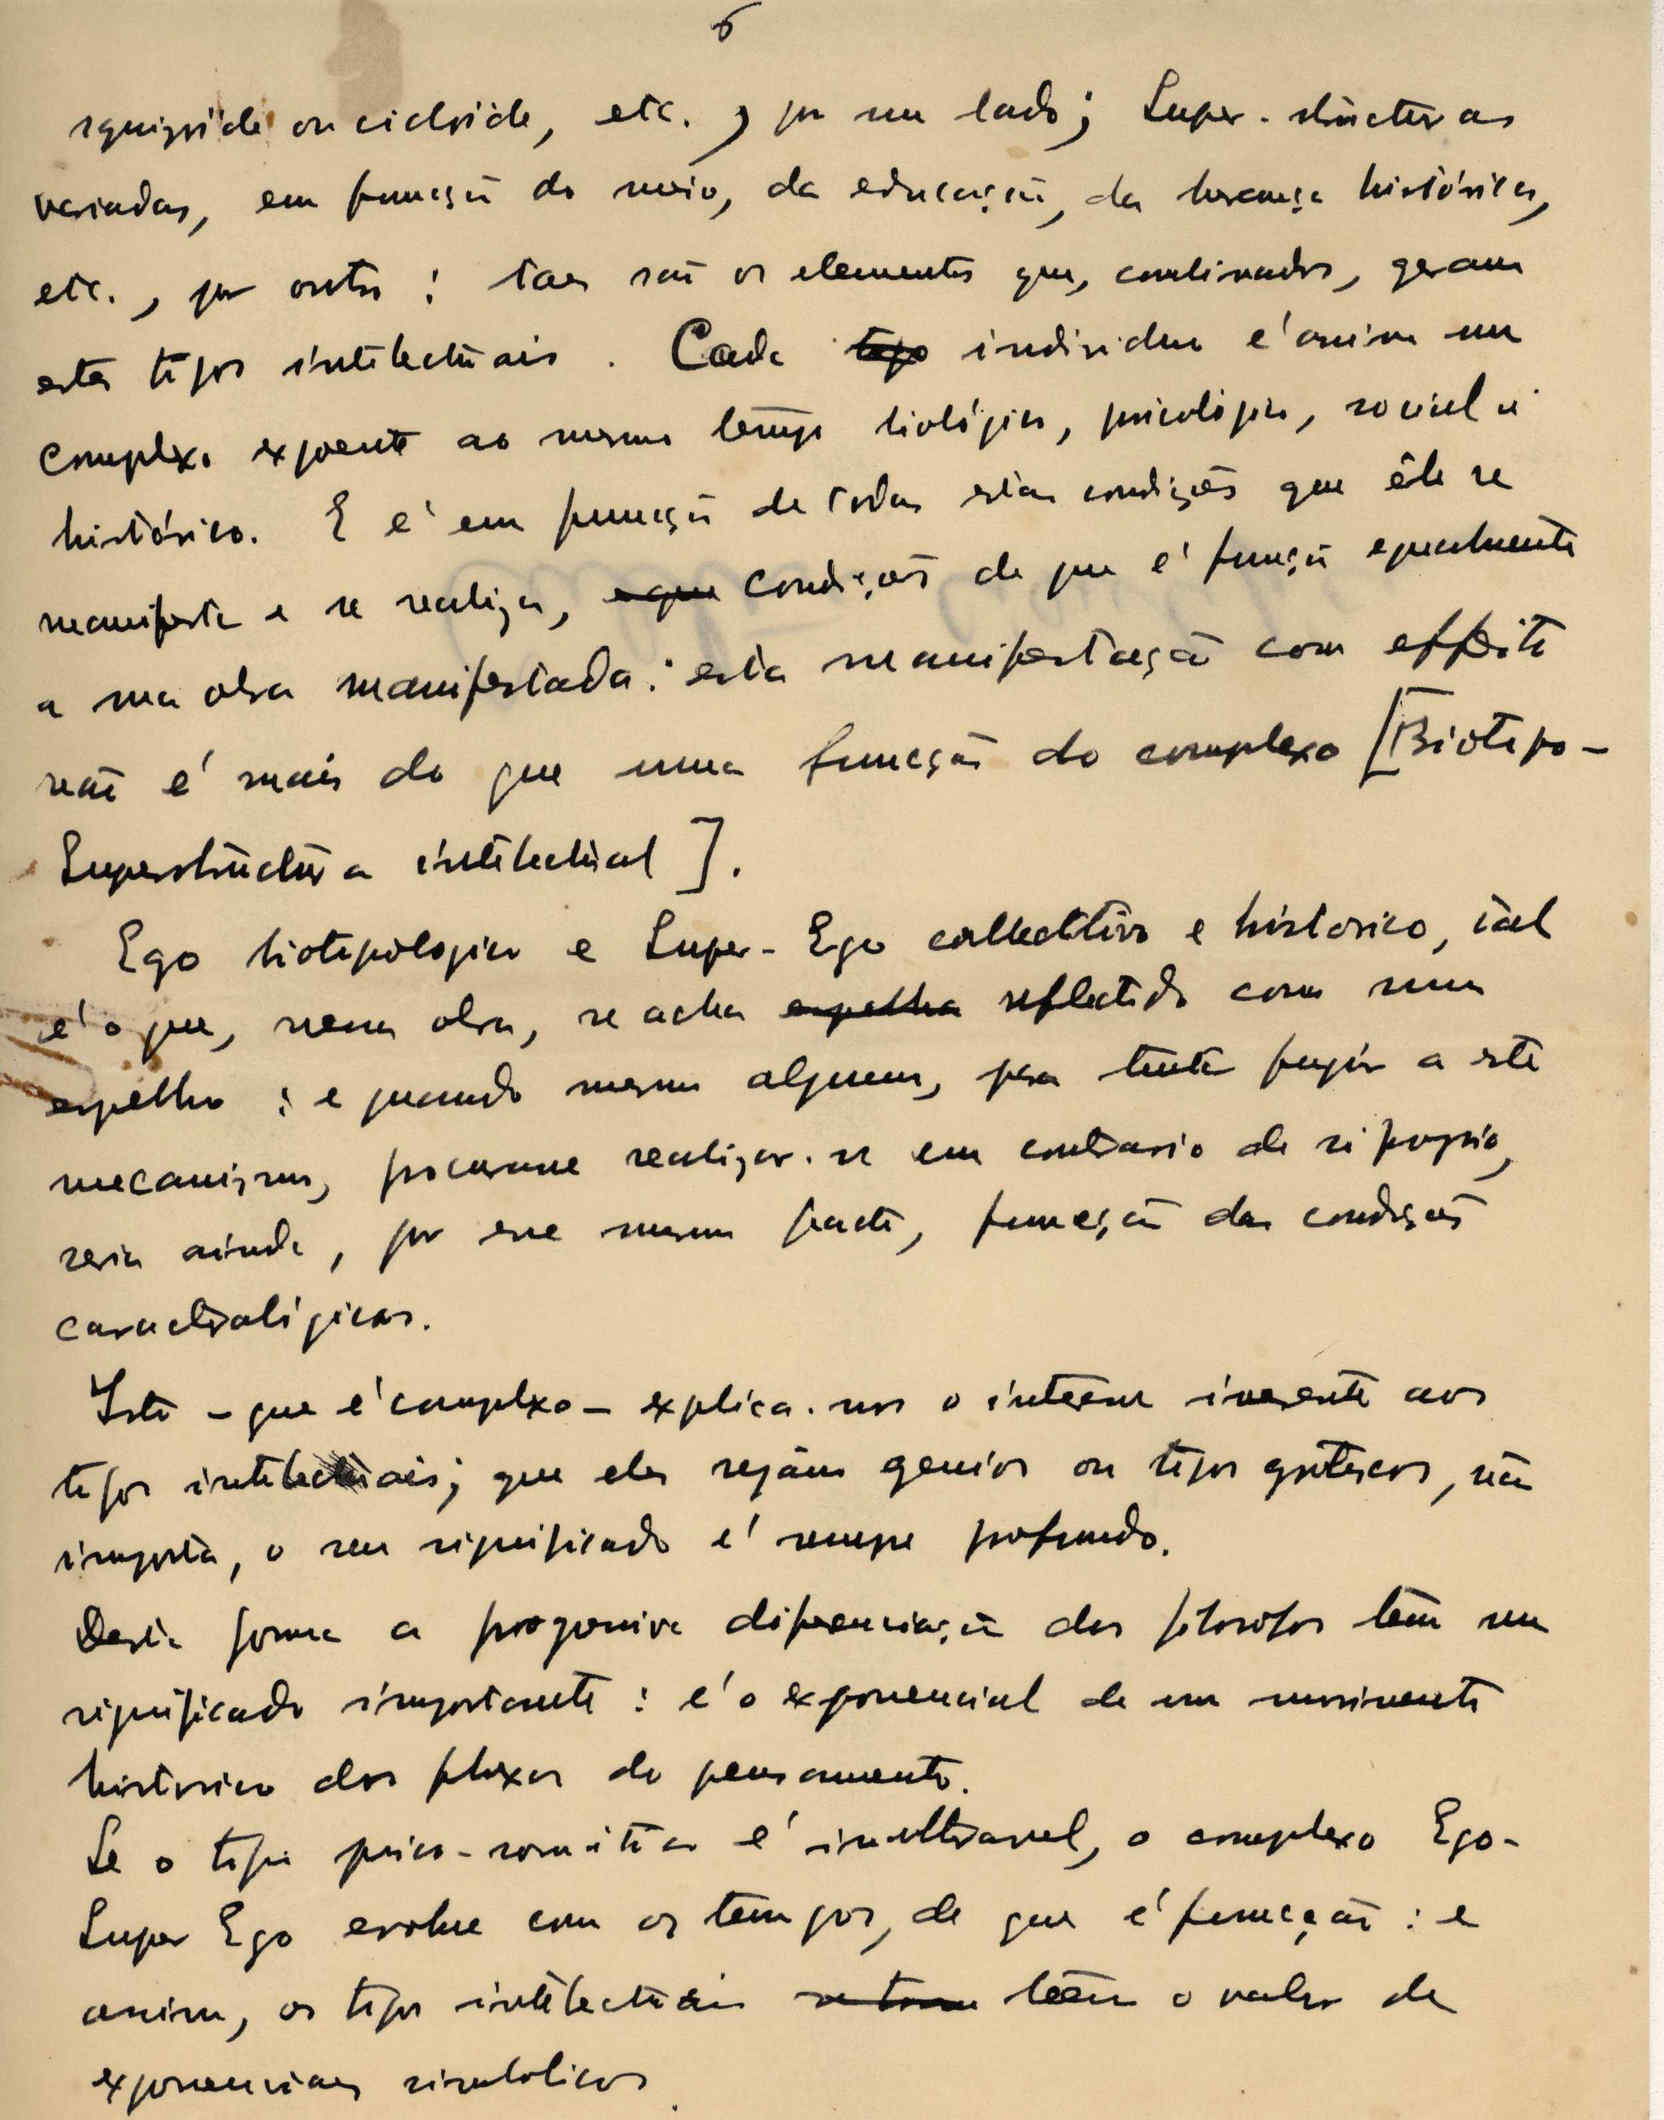 6
squizoide ou cicloide, etc., por um lado; Super-structuras
variadas, em funcção do meio, da educação, da herança histórica,
etc., por outro: taes são os elementos que, combinados, geram
estes tipos intelectuais. Cada tipo individuo é assim um
complexo expoente ao mesmo tempo biológico, psicológico, social e
histórico. E é em funcção de todas estas condições que êle se
manifesta e se realiza, e que condições de que é função egualmente
a sua obra manifestada: esta manifestação com effeito
não é mais do que uma funcção do complexo [Biotipo-
Superstructura intelectual].
Ego biotipologico e Super-Ego collectivo e historico, tal
é o que, nessa obra, se acha espelha reflectido como num
espelho: e quando mesmo alguem, para tentar fugir a este
mecanismo, procurasse realizar-se em contrario de si proprio,
seria ainda, por esse mesmo facto, funcção das condições
caracterológicas.
Isto - que é complexo - explica-nos o interesse inerente aos
tipos intelectuais; que eles sejam genios ou tipos grotescos, não
importa, o seu significado é sempre profundo.
Desta forma a progressiva diferenciação dos filosofos tem um
significado importante: é o exponencial de um movimento
historico dos fluxos do pensamento.
Se o tipo psico-somático é inalteravel, o complexo Ego-
Super Ego evolue com os tempos, de que é funcção: e
assim, os tipos intelectuais se torna têem o valor de
exponenciaes simbolicos.